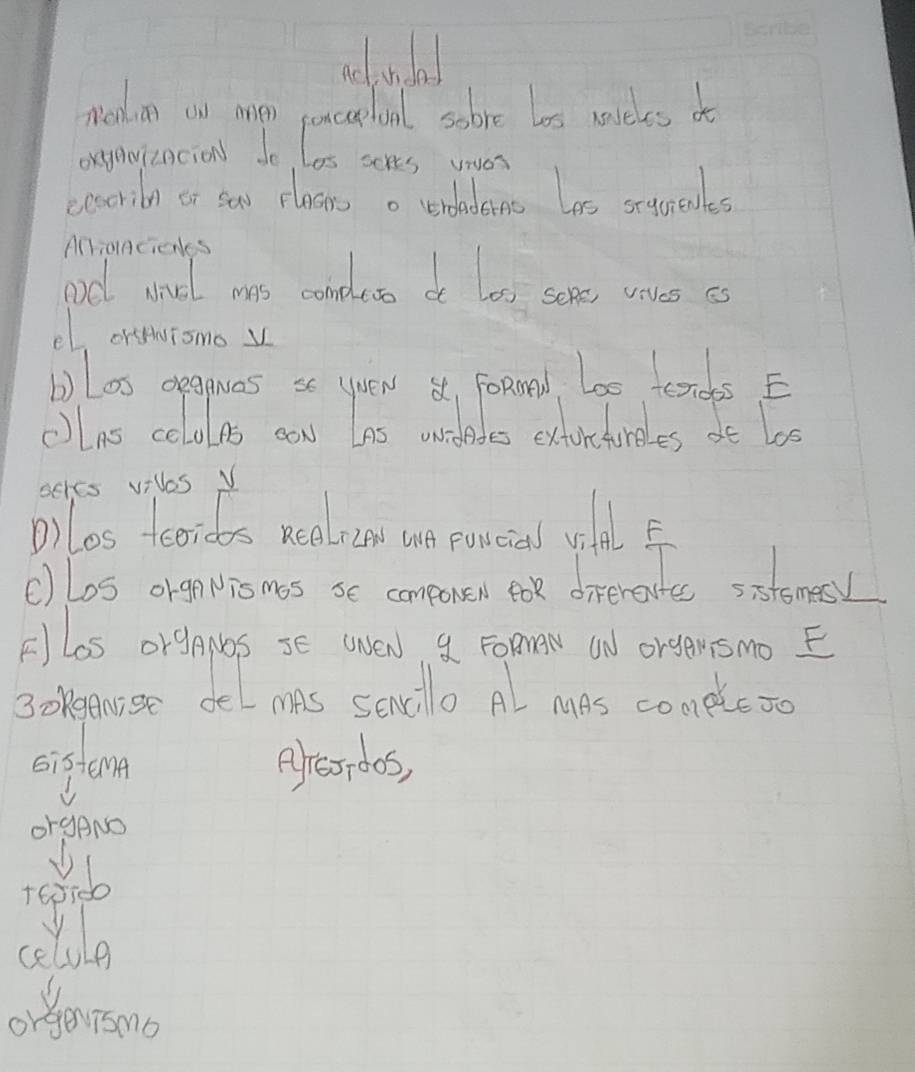 Actividad
Realian un mapa conceptual sobre Los Niveles de
organizacion de Los seres vivos
escriba si son FLASAS o verdaderas LAS siguientes
AFirmaciones
A) el Nivel mas complejo de Los seres vivos es
el organismo V
b) Los organos se UNEN y FORMAN Los tejidos F
c) LAS celulas son LAS unidades exturcturales de Los
seres vivos V
D) Los tejidos REALIZAN UNA FUNCION vital F
E) Los organismos se componen por diferentes sistemas V
F) Los organos se UNEN y FORMAN UN organismo F
3 organise del mas sencillo AL mas complejo
sistema
A) tejidos,
organo
tejido
celula
organismo